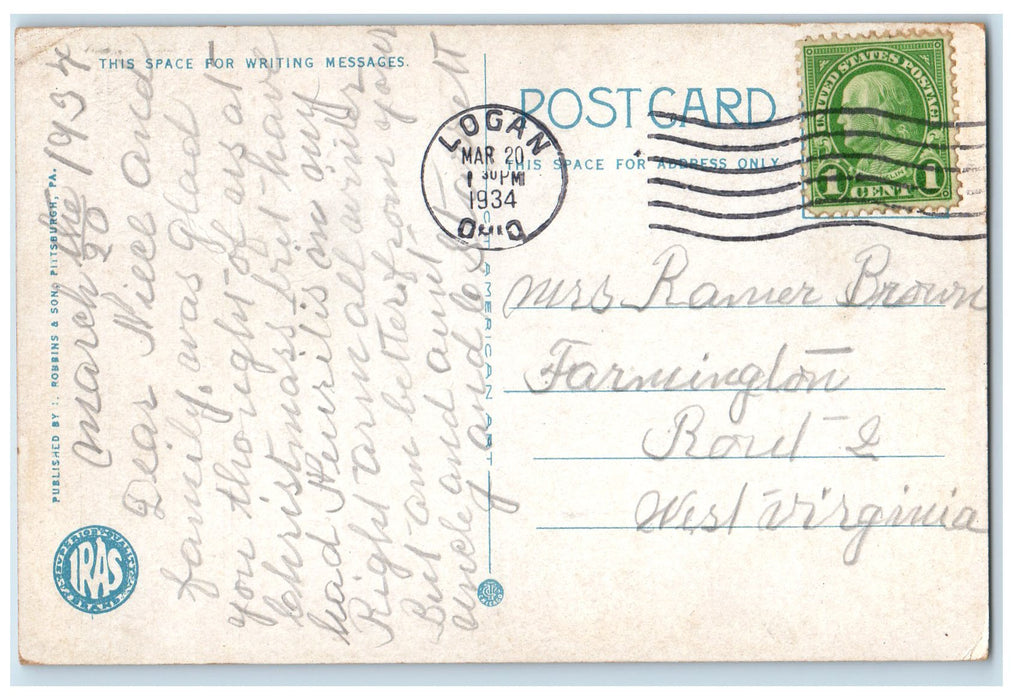 THIS SPACE FOR WRITING MESSAGES.
POST CARD
THIS SPACE FOR ADDRESS ONLY.
UNITED STATES POSTAGE
1 CENT 1
LOGAN
MAR 20
1 30 PM
1934
OHIO
PUBLISHED BY I. ROBBINS & SON, PITTSBURGH, PA.
SUPERIOR QUALITY
IRAS
BRAND
AMERICAN ART
march the 20 1934
Dear Niece and
family, was glad
you thought of us at
Christmass, but have
had Neuritis in my
Right arm all winter
But am better, from your
uncle and aunt
Mrs Ramer Brown
Farmington
Rout 2
West Virginia